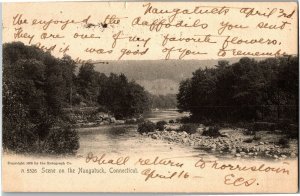 Naugatucks April 3rd
We enjoyed the daffodils you sent
They are one of my favorite flowers.
it was good of you to think of me
Copyright 1905 by the Rotograph Co.
A 5526 Scene on the Naugatuck, Connecticut.
Shall return to Morristown
April 16—
E.C.S.